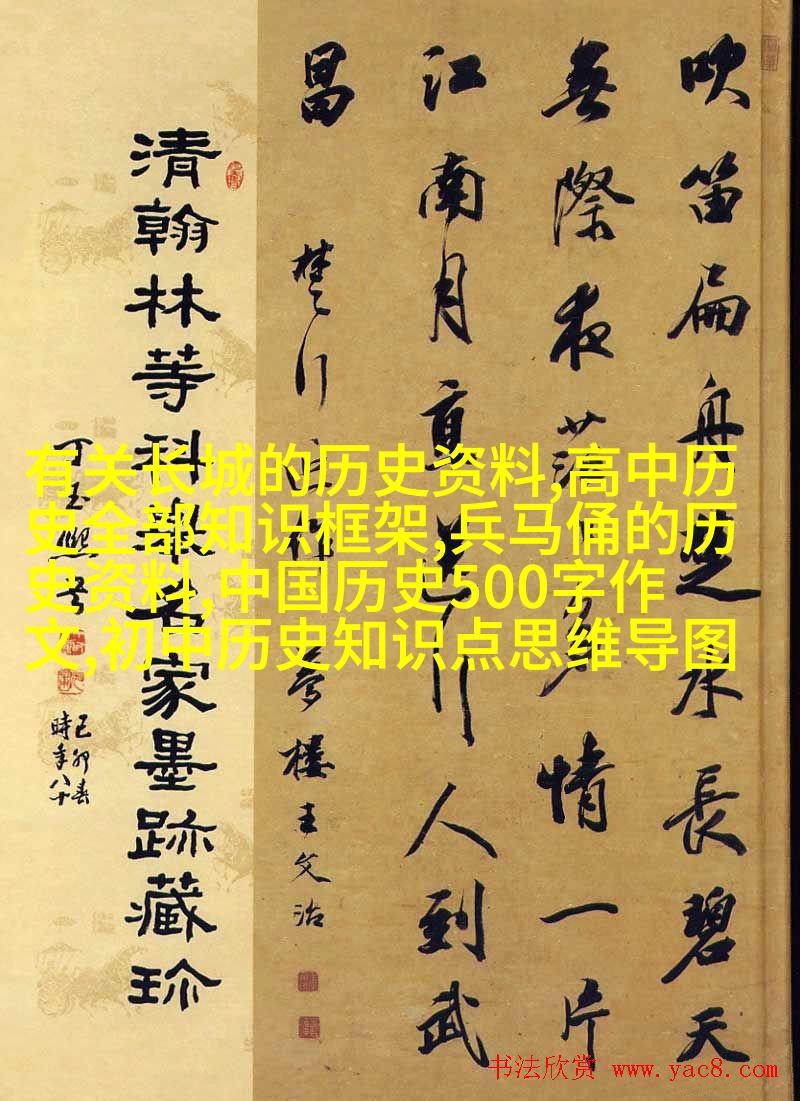 吹笛扁舟楚水長碧天
無際夜蒼多情一片
江南月直送行人到武
昌
楚行 夢樓王文治
清翰林等科舉名家墨跡藏珍
丁玉熙書
己卯春
時年八十
有关长城的历史资料,高中历
史全部知识框架,兵马俑的历
史资料,中国历史500字作
文,初中历史知识点思维导图
书法欣赏 www.yac8.com